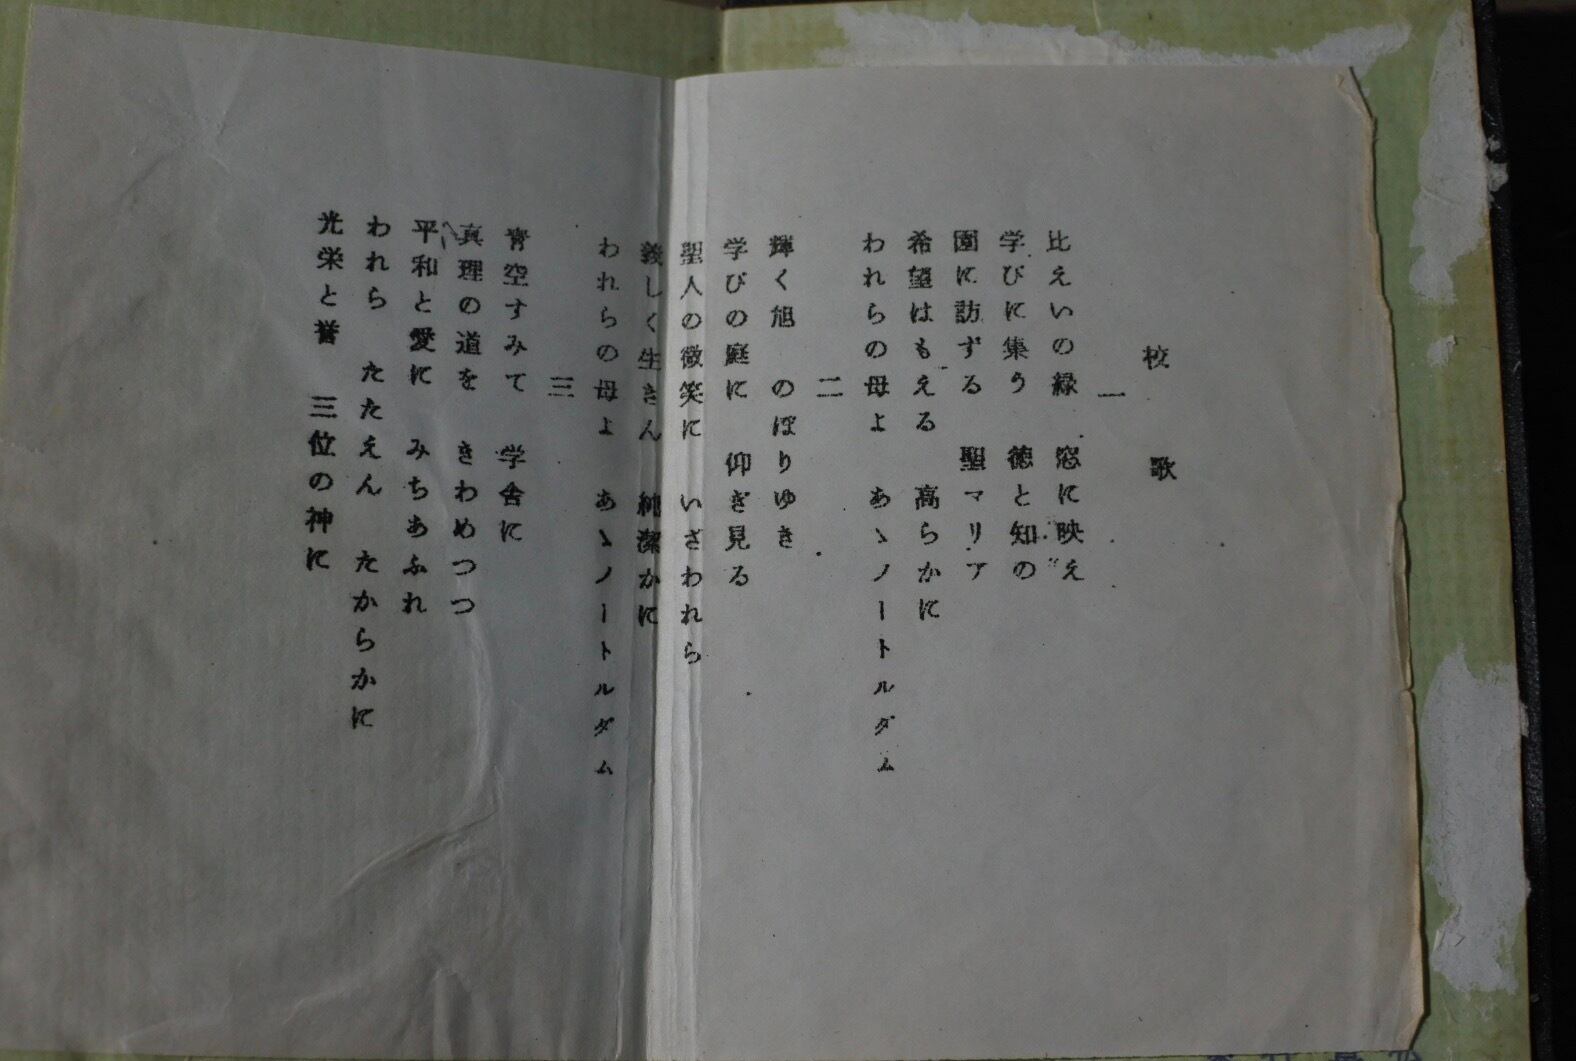 校 歌
一
比えいの緑 窓に映え
学びに集う 徳と知の
園に訪ずる 聖マリア
希望はもえる 高らかに
われらの母よ あゝノートルダム
二
輝く旭 のぼりゆき
学びの庭に 仰ぎ見る
聖人の微笑に いざわれら
義しく生きん 純潔かに
われらの母よ あゝノートルダム
三
青空すみて 学舎に
真理の道を きわめつつ
平和と愛に みちあふれ
われら たたえん たからかに
光栄と誉 三位の神に